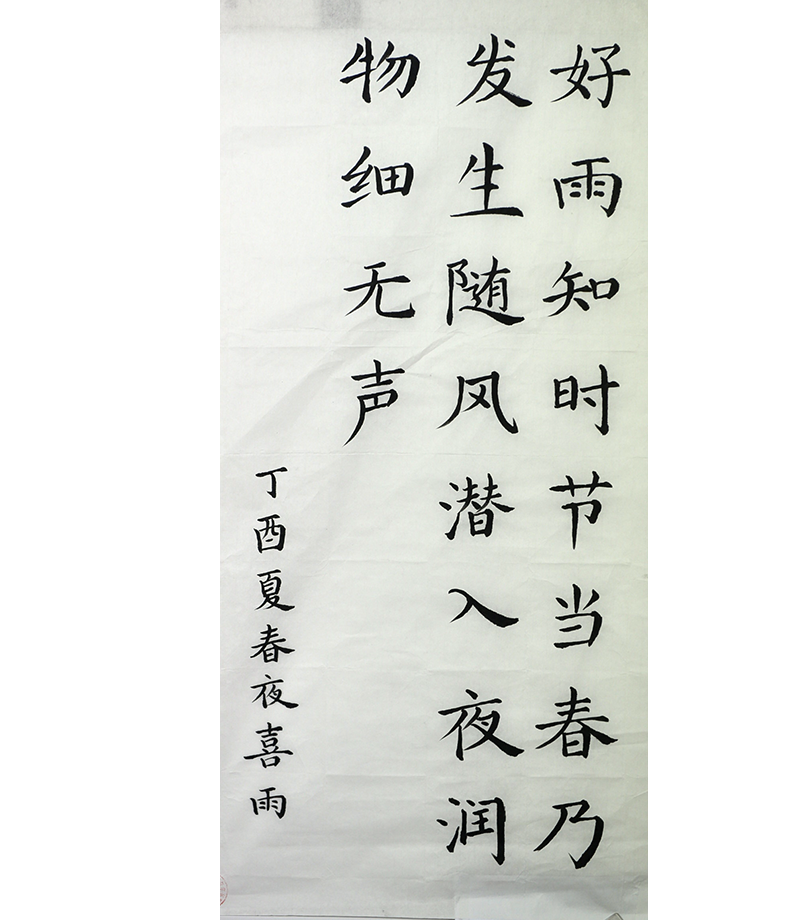 好雨知时节当春乃
发生随风潜入夜润
物细无声
丁酉夏春夜喜雨